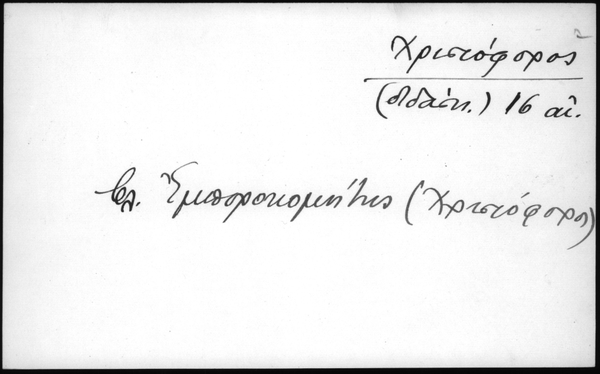 Χριστόφορος
(διδάσκ.) 16 αἰ.
βλ. Ἐμποροκομήτης (Χριστόφορος)